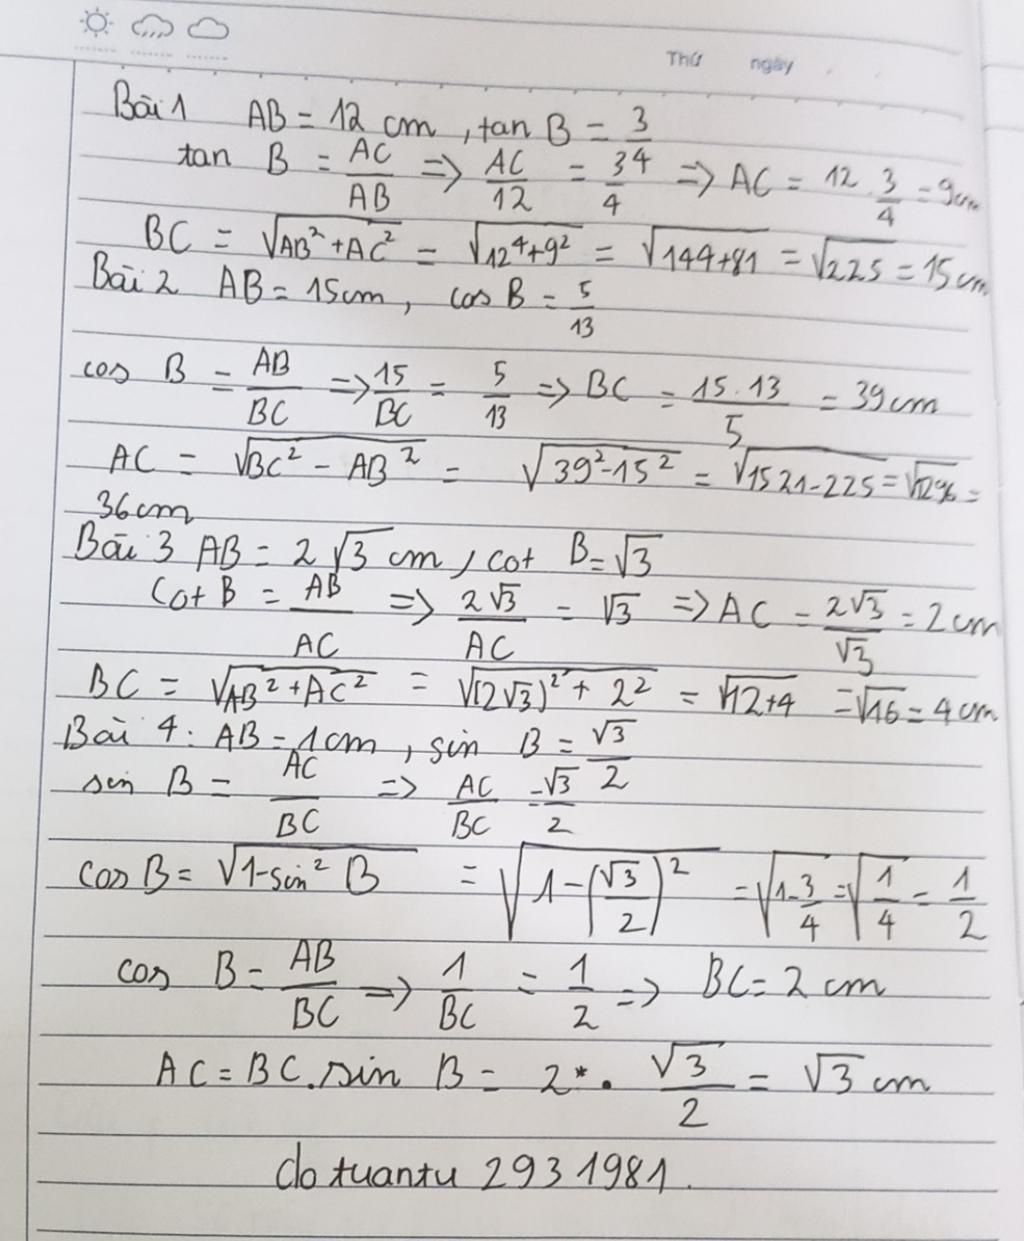 Thứ ngày
Bài 1 AB = 12 cm, tan B = 3
tan B = AC/AB => AC/12 = 34/4 => AC = 12 . 3/4 = 9cm
BC = √(AB² + AC²) = √(12⁴ + 9²) = √(144+81) = √225 = 15cm
Bài 2 AB = 15cm, cos B = 5/13
cos B = AB/BC => 15/BC = 5/13 => BC = (15.13)/5 = 39cm
AC = √(BC² - AB²) = √(39² - 15²) = √(1521-225) = √1296 =
36cm
Bài 3 AB = 2√3 cm, cot B = √3
Cot B = AB/AC => 2√3/AC = √3 => AC = 2√3/√3 = 2cm
BC = √(AB² + AC²) = √((2√3)² + 2²) = √(12+4) = √16 = 4cm
Bài 4: AB = 1cm, sin B = √3/2
sin B = AC/BC => AC/BC = √3/2
cos B = √(1-sin² B) = √(1-(√3/2)²) = √(1-3/4) = √(1/4) = 1/2
cos B = AB/BC => 1/BC = 1/2 => BC = 2 cm
AC = BC.sin B = 2 . √3/2 = √3 cm
do tuantu 2931981.